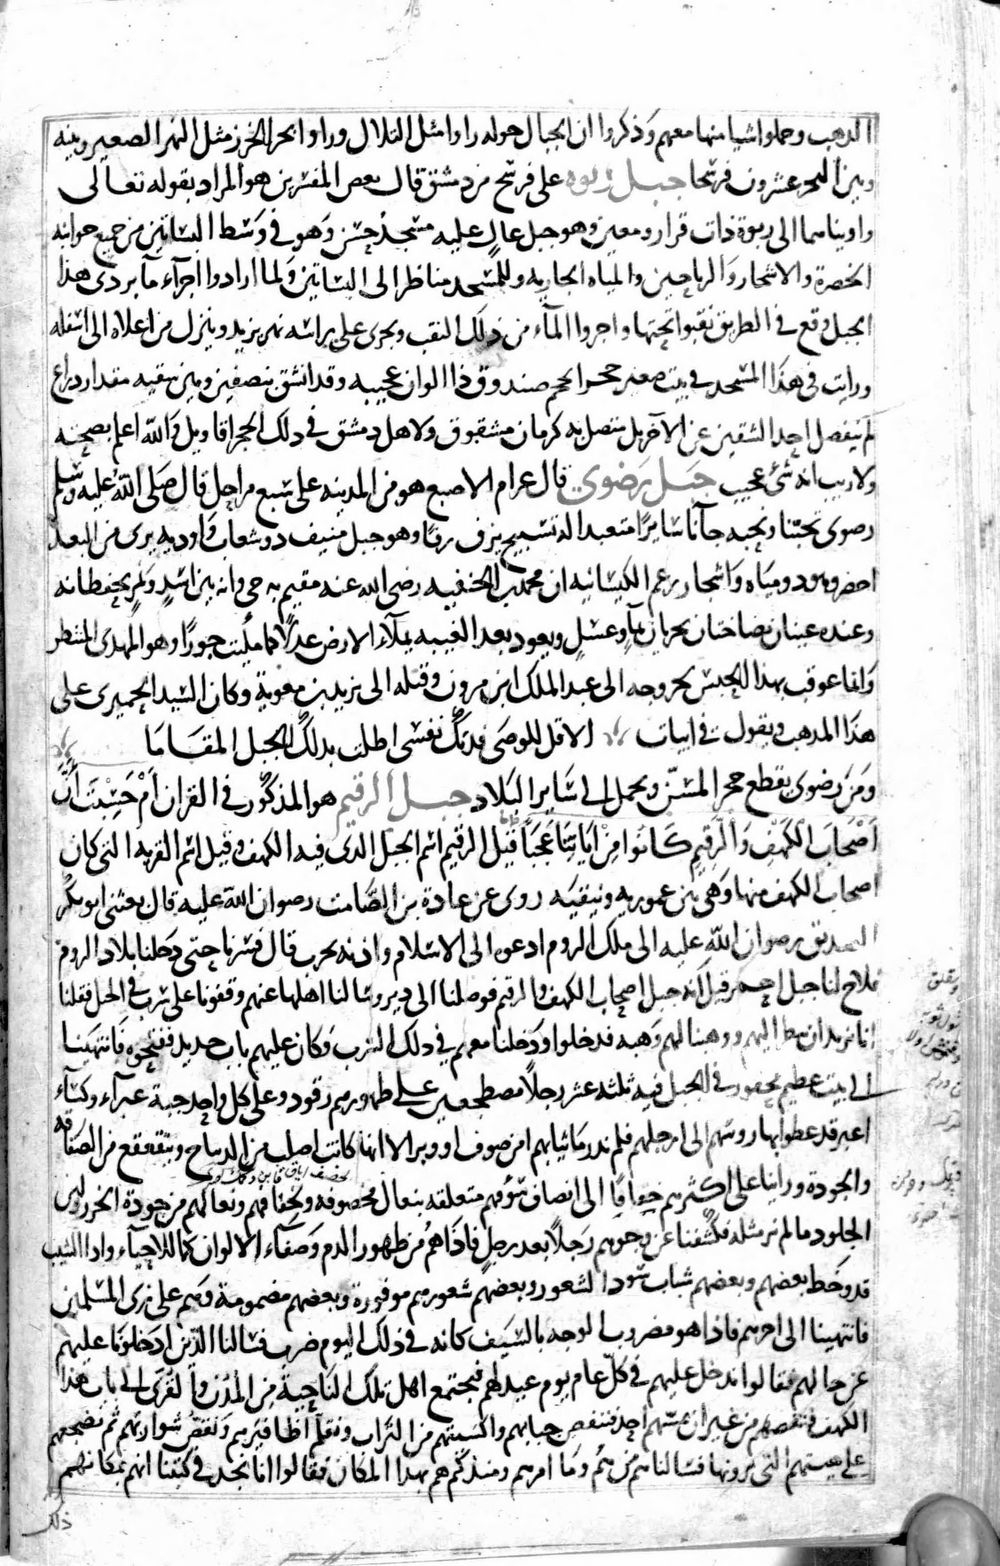 الذهب وحملوا اشيا منها معهم وذكروا ان الجبال حوله راوا مثل التلال وراوا بحر الخزر مثل النهر الصغير وبينه
وبين البحر عشرون فرسخا جبل ربوه على فرسخ من دمشق قال بعض المفسرين هو المراد بقوله تعالى
واويناهما الى ربوة ذات قرار ومعين وهو جبل عال عليه مسجد حسن وهو في وسط البساتين من جميع جوانبه
الخضرة والاشجار والرياحين والمياه الجاريه وللمسجد مناظر الى البساتين ولما ارادوا اجرآء مآ بردى هذا
الجبل وقع في الطريق نقبوا تحتها واجروا المآء من ذلك النقب ويجرى على راسه نهر يزيد وينزل من اعلاه الى اسفله
ورايت في هذا المسجد في بيت صغير حجرا كحجم صندوق ذا الوان عجيبه وقد انشق بنصفين وبين شقيه مقدار ذراع
لم ينفصل احد الشقين عن الآخر بل متصل به كرمان مشقوق ولاهل دمشق في ذلك الحجر اقاويل والله اعلم بصحته
ولا ريب انه شئ عجيب جبل رضوى قال عرام الاصبع هو من المدينه على سبع مراحل قال صلى الله عليه وسلم
رضوى يحبنا ونحبه جآنا سايرا متعبدا له تسبيح يزف زفا وهو جبل منيف ذو شعاب واوديه يرى من البعد
اخضر وبه ومياه واشجار يزعم الكيسانيه ان محمد بن الحنفيه رضى الله عنه مقيم به حى وانه بين اسد ونمر يحفظانه
وعنده عينان نضاختان يجريان بمآ وعسل ويعود بعد الغيبه يملآء الارض عدلا كما مليت جورا وهو المهدى المنتظر
وانما عوقب بهذا الحبس لخروجه الى عبد الملك ابن مرون وقبله الى يزيد بن معوية وكان السيد الحميرى على
هذا المذهب ويقول في ابيات الا قل للوصى فدتك نفسى اطلت بذلك الجبل المقاما
ومن رضوى يقطع حجر المسن ويحمل الى ساير البلاد جبل الرقيم هو المذكور في القران ام حسبت ان
اصحاب الكهف والرقيم كانوا من اياتنا عجبا قيل الرقيم اسم الجبل الذى فيه الكهف وقيل اسم القريه التى كان
اصحاب الكهف منها وهى بين عموريه ونيقيه روى عن عبادة بن الصامت رضوان الله عليه قال بعثنى ابو بكر
الصديق رضوان الله عليه الى ملك الروم ادعوه الى الاسلام واذنه بحرب قال فسرنا حتى دخلنا بلاد الروم
فلاح لنا جبل احمر قيل انه جبل اصحاب الكهف والرقيم فوصلنا الى دير وسالنا اهلها عنهم وقفونا على سرب في الجبل فقلنا
انا نريد ان ننظر اليهم ووهبنا لهم وهبه فدخلوا ودخلنا معهم في ذلك السرب وكان عليهم باب حديد ففتحوه فانتهينا
الى بيت عظيم محفور في الجبل فيه ثلثه عشر رجلا مضطجعين على ظهورهم رقود وعلى كل واحد جبة غبرآء وكسآء
اغبر قد غطوا بها روسهم الى ارجلهم فلم ندر ما ثيابهم امن صوف او وبر الا انها كانت اصلب من الديباج وتتقعقع من الصفاقه
والجودة وراينا على اكثرهم خفافا الى انصاف سوقهم متعلقه بنعال مخصوفه ولخفافهم ونعالهم من جودة الخرز ولين
الجلود ما لم نر مثله فكشفنا عن وجوههم رجلا بعد رجل فاذا هم من ظهور الدم وصفآء الالوان كالاحيآء واذا الشيب
قد وخط بعضهم وبعضهم شاب سودا الشعور وبعضهم شعورهم موفورة وبعضهم مضمومة وهم على زى المسلمين
فانتهينا الى اخرهم فاذا هو مضروب الوجه بالسيف كانه في ذلك اليوم ضرب فسالنا الذين ادخلونا عليهم
عن حالهم فقالوا ندخل عليهم في كل عام يوم عيد لهم فيجتمع اهل تلك الناحية من المدن والقرى الى باب هذا
الكهف فننفضهم من غير ان يمسهم احد فننفض جبابهم واكسيتهم من التراب ونقلم اظافيرهم ونقص شواربهم ثم نضجعهم
على هيئتهم التى ترونها فسالناهم من هم وما امرهم ومنذكم هم بهذا المكان فقالوا انا نجد في كتبنا انهم بمكانهم
ذلك